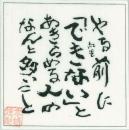 やる前に
「できない」と
あきらめる人の
なんと多いこと